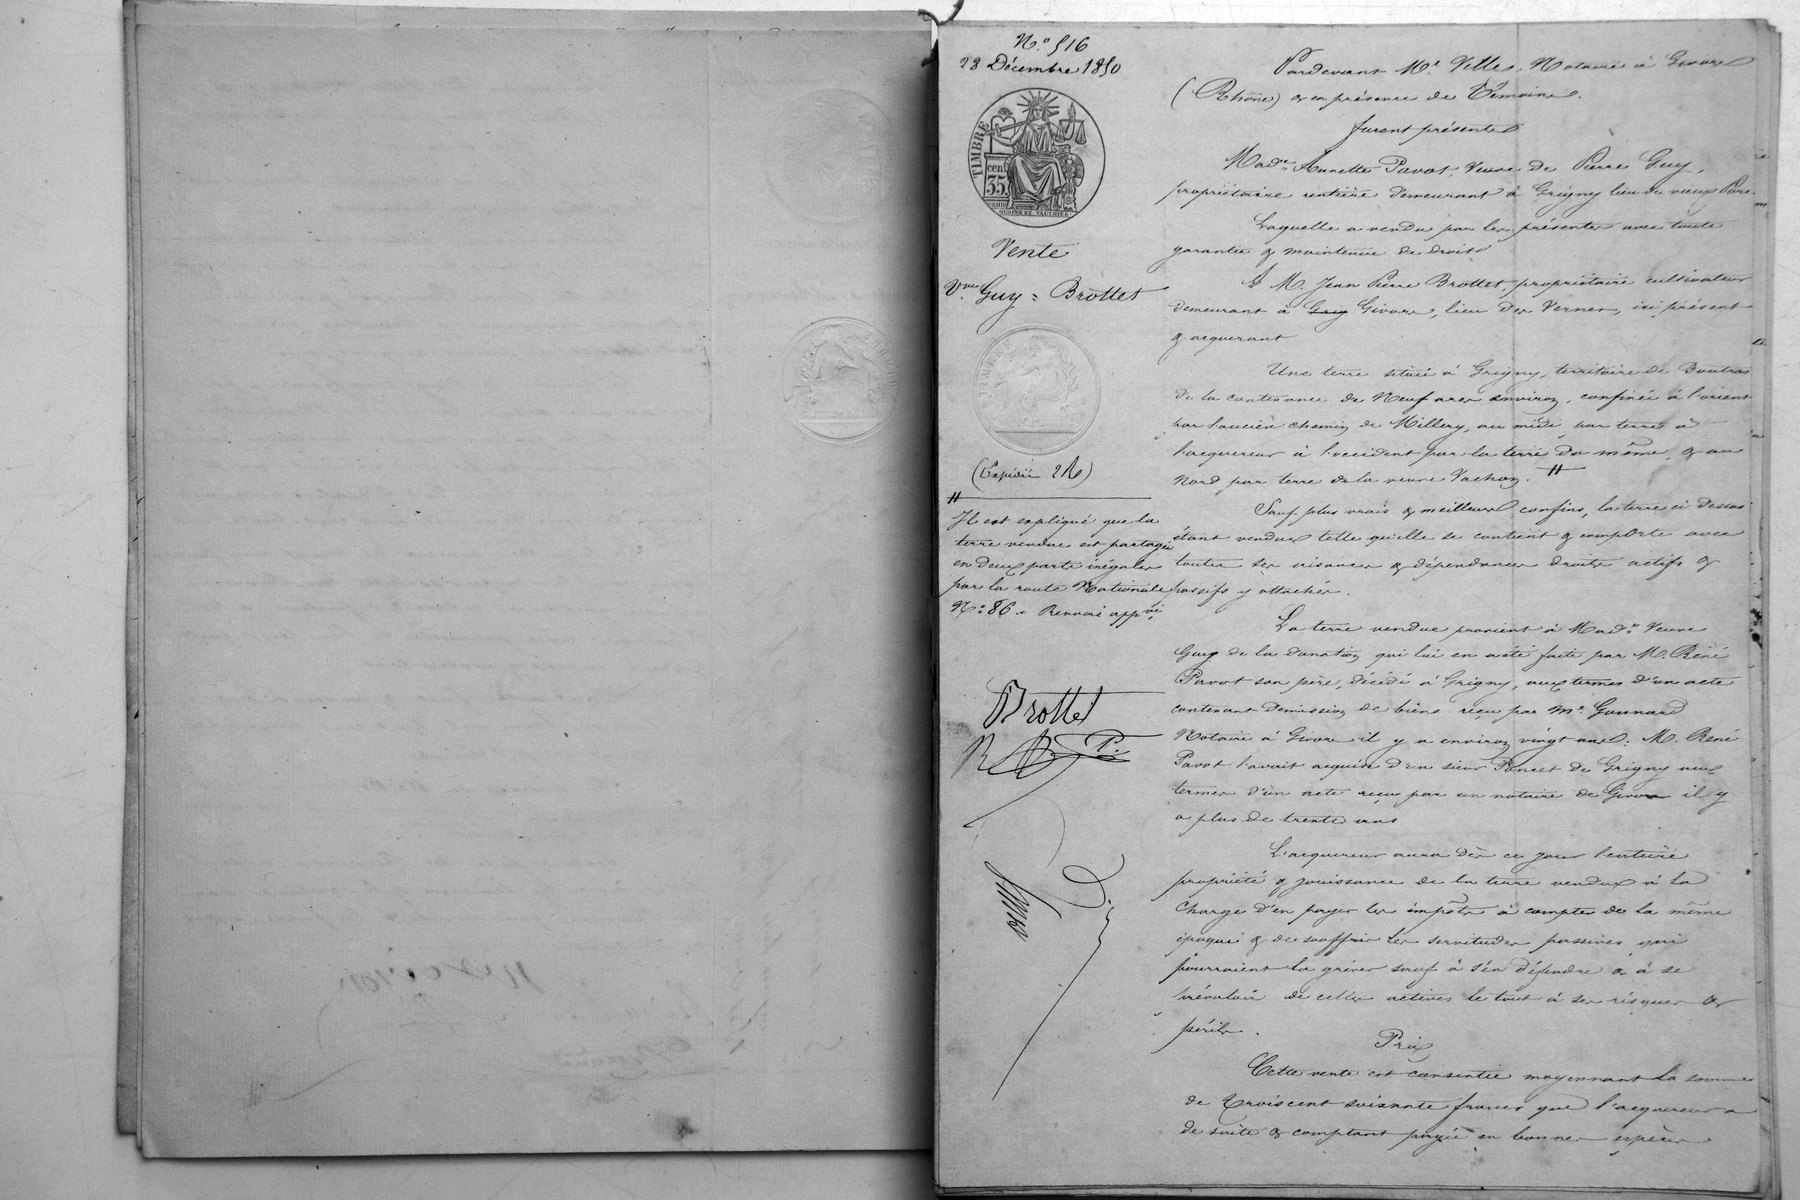 N.o 516
28 Décembre 1850
TIMBRE
cen.
35
OUDINÉ ET VAUTHIER
Vente
Vve Guy = Brottet
TIMBRE
(Expédié
Pardevant Me Velle, Notaire à Givors
(Rhône) & en présence de Témoins.
furent présents
Made Annette Pavot, Veuve de Pierre Guy,
propriétaire rentière demeurant à Grigny lieu de vieux
Laquelle a vendu par les présentes avec toute
garantie & maintenue de droit
A M. Jean Pierre Brottet, propriétaire cultivateur
demeurant à Grig Givors, lieu des Vernes, ici présent
& acquerant
Une terre située à Grigny, territoire de Boutras
de la contenance de Neuf ares environ, confinée à l'orient
par l'ancien chemin de Millery, au midi par terre à
l'acquereur à l'occident par la terre du même, & au
Nord par terre de la veuve Vachon. //
Sauf plus vrais & meilleurs confins, la terre ci dessus
étant vendue telle qu'elle se contient & comporte avec
toutes ses aisances & dépendances droits actifs &
passifs y attachés.
La terre vendue provient à Made Veuve
Guy de la donation qui lui en a été faite par M. René
Pavot son père, décédé à Grigny, aux termes d'un acte
contenant démission de biens reçu par Me Gonnard
Notaire à Givors il y a environ vingt ans: M. René
Pavot l'avait acquise d'un sieur Poncet de Grigny aux
termes d'un acte reçu par un notaire de Givors il y
a plus de trente ans
L'acquereur aura dès ce jour l'entière
propriété & jouissance de la terre vendue à la
charge d'en payer les impôts à compter de la même
époque & de souffrir les servitudes passives qui
pourraient la grèver sauf à s'en défendre & à se
prévaloir de celles actives le tout à ses risques &
périls.
Prix
Cette vente est consentie moyennant la somme
de trois cent soixante francs que l'acquereur a
de suite & comptant payée en bonnes espèces
//
Il est expliqué que la
terre vendue est partagée
en deux parts inégales
par la route Nationale
N.o 86. Renvoi appvé
Brottet